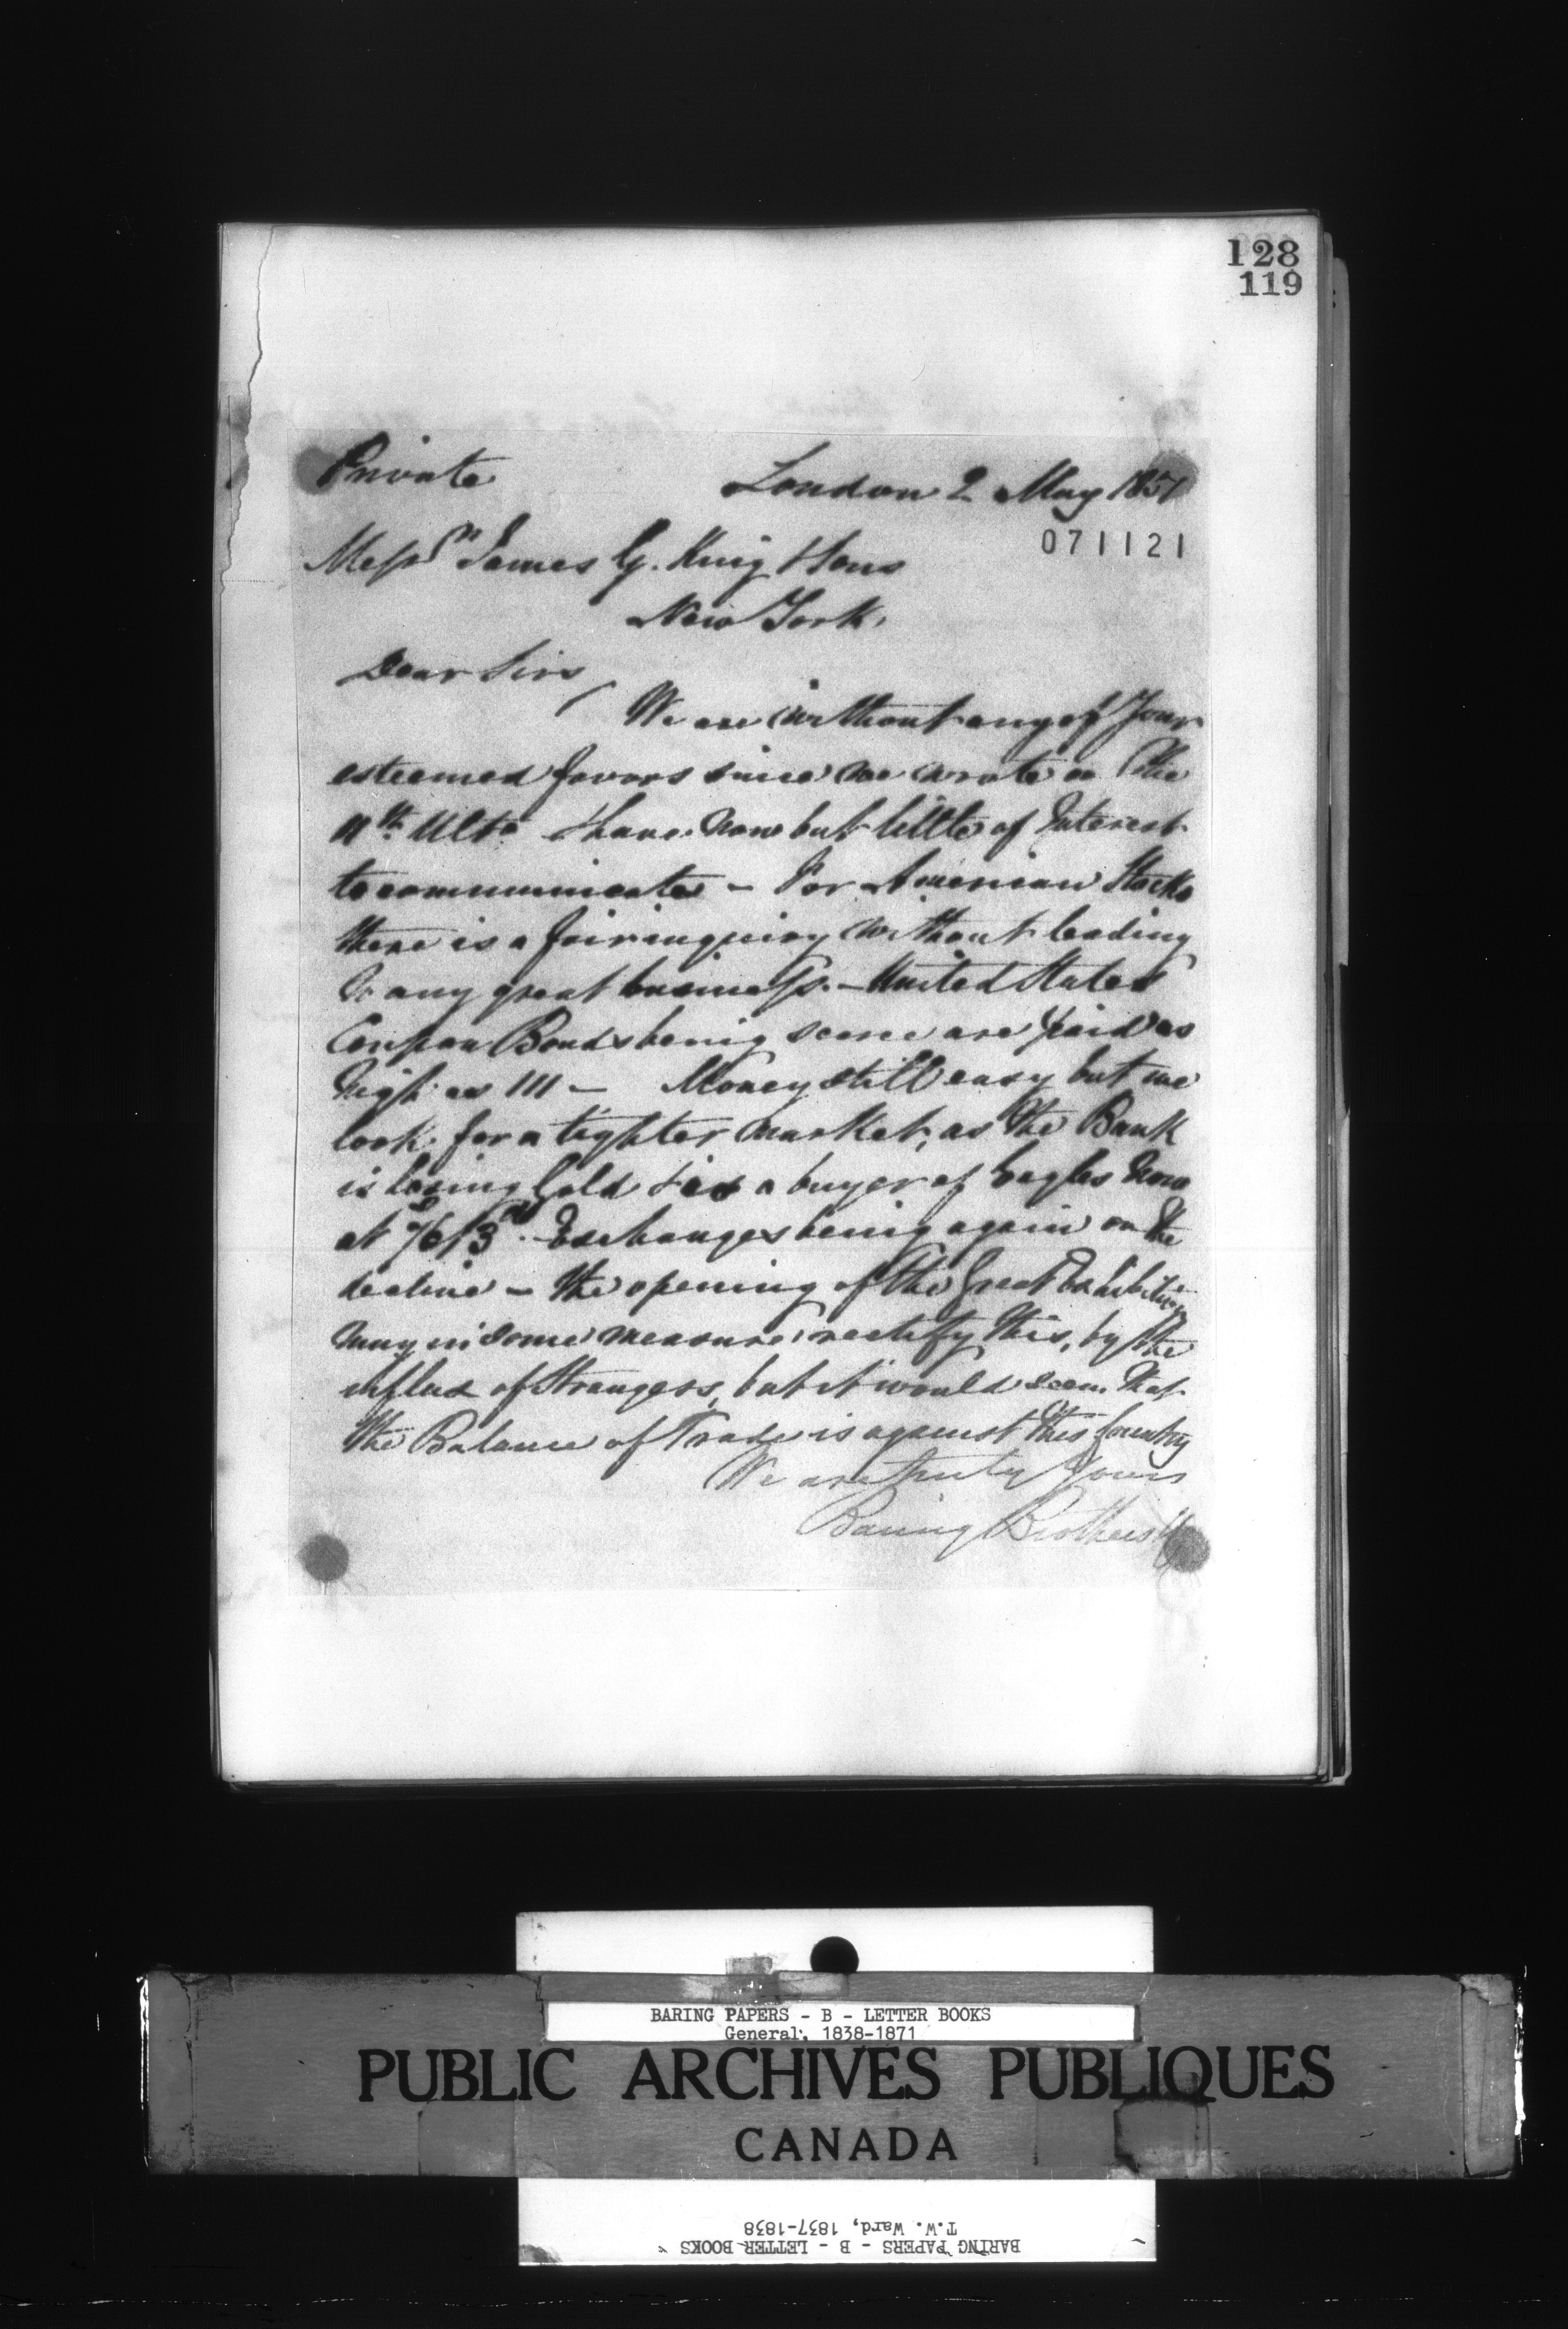 128
119
Private
London 2 May 1851
071121
Messrs James G. King & Sons
New York.
Dear Sirs
We are without any of Your
esteemed favors since we wrote on the
11th Ulto & have now but little of Interest
to communicate - For American Stocks
there is a fair inquiry without leading
to any great business. - United States
Coupon Bonds being scarce are paid as
high as 111 - Money still easy but we
look for a tighter market, as the Bank
is losing Gold & is a buyer of Eagles now
at 76/3d. Exchanges being again on the
decline - the opening of the Great Exhibition
may in some measure rectify this, by the
influx of Strangers, but it would seem that
the Balance of Trade is against this Country
We are truly Yours
Baring Brothers & Co
BARING PAPERS - B - LETTER BOOKS
General, 1838-1871
PUBLIC ARCHIVES PUBLIQUES
CANADA
BARING PAPERS - B - LETTER BOOKS
T.W. Ward, 1837-1838